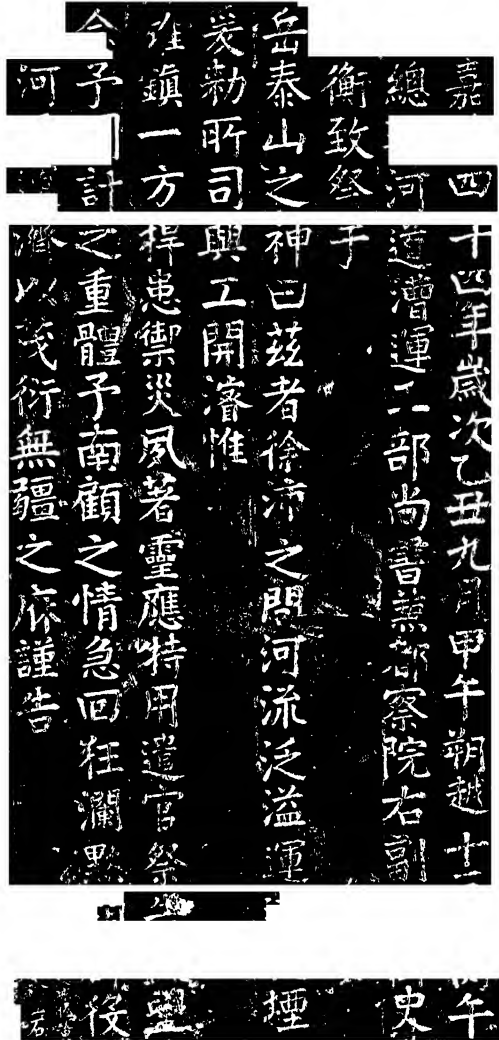 嘉四十四年歲次乙丑九月甲午朔越十午
總河道漕運工部尚書兼都察院右副史
衡致祭于
岳泰山之神曰茲者徐沛之間河流泛溢運堙
爰勑所司興工開濬惟
雖鎮一方捍患禦災夙著靈應特用遣官祭望
予計之重體予南顧之情急回狂瀾默役
河濟以茂衍無疆之庥謹告